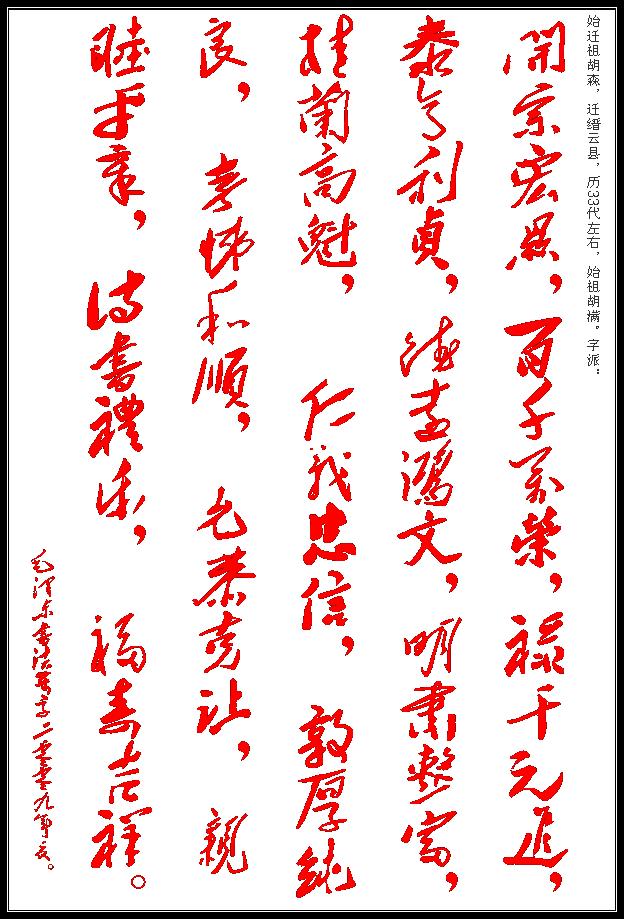 始迁祖胡森，迁缙云县，历33代左右，始祖胡满。字派：
開宗宏恩，百千萬榮，禄千元進，
泰亨利貞，德嘉鴻文，明肅整富，
桂蘭高魁，仁義忠信，敦厚純
良，孝悌和順，允恭克让，親
睦平章，诗書禮乐，福寿吉祥。
毛泽东書法集字二零零九年夏。